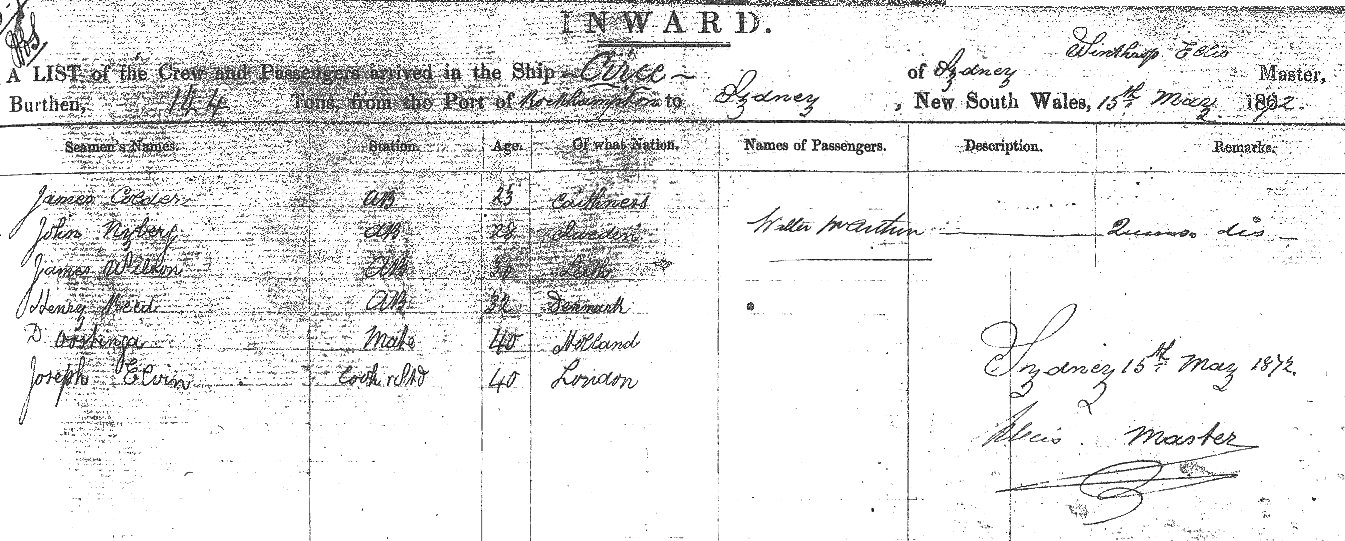 INWARD.
Winthrop Ellis
A LIST of the Crew and Passengers arrived in the Ship Circe of Sydney Master,
Burthen, 144 Tons, from the Port of Rockhampton to Sydney, New South Wales, 15th May 1872.
Seamen's Names. Station. Age. Of what Nation. Names of Passengers. Description. Remarks.
James AB 25 Caithness
John Nyberg AB 28 Sweden Walter McArthur
James Wilson AB Leith
Henry Reed AB 32 Denmark
D Oostinga Mate 40 Holland
Joseph Elvin Cook & Std 40 London
Sydney 15th May 1872.
Master